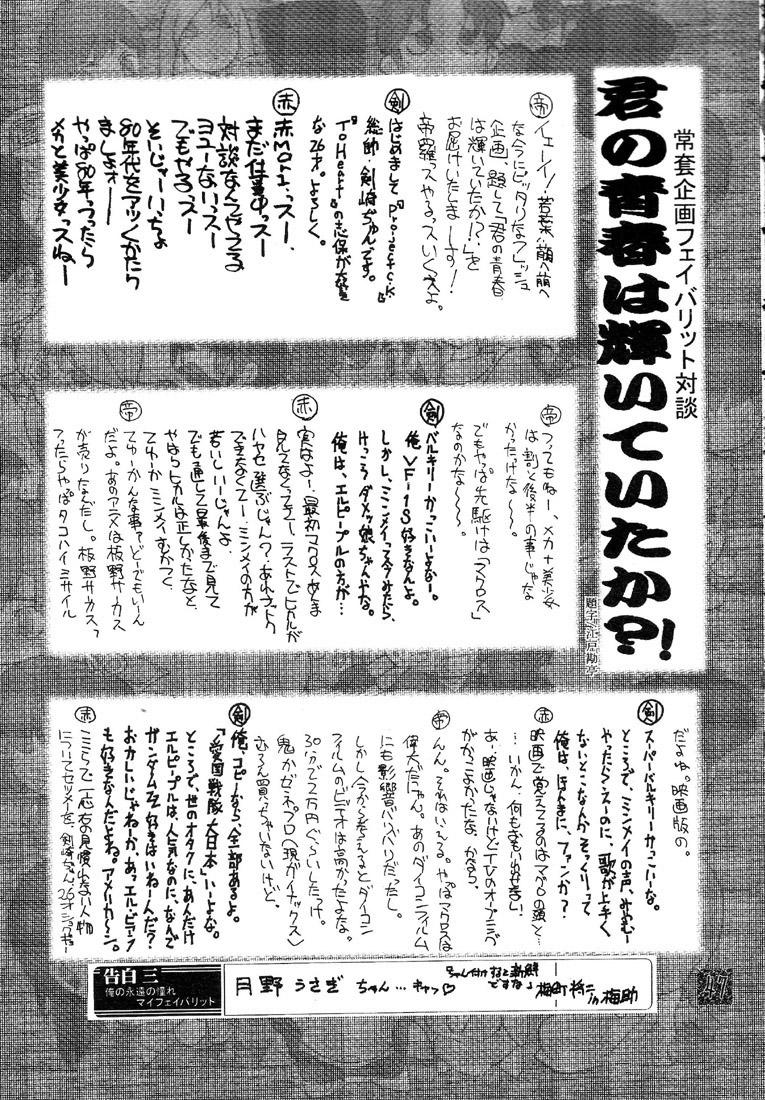 常套企画フェイバリット対談
君の青春は輝いていたか?!
題字・江戸勘亭
帝 イェーイ!若葉萌へ萌へ
な今にピッタリなフレッシュ
企画、題して「君の青春
は輝いていたか!?」を
お届けいたしまーす!
帝羅ッスやるっスいくっスよ。
剣 はじめまして『Project C.K』
総帥・剣崎ぢゅんです。
『To Heart』の志保が大好き
な26才。よろしく。
赤 赤Moriっスー、
まだ仕事中っスー
対談なんてやってる
ヨユーないっスー
でもやるっスー
そいじゃーいっちょ
80年代をアツくかたり
ましょォー
やっぱ80年っつったら
メカと美少女っスねー
帝 つってもねー、メカ+美少女
は割と後半の事じゃな
かったけな〜〜。
でもやっぱ先駆けは「マクロス」
なのかな〜〜〜。
剣 バルキリーかっこいーよなー。
俺、VF-1S好きなんよ。
しかし、ミンメイって今みたら、
けっこうダメッ娘ちゃんやな。
俺は、エルピープルの方が…
赤 実はよー、最初マクロスあま
見てなくってよー、ラストでヒカルが
ハヤセ選ぶじゃんっ?あれナットク
できなくてよー、ミンメイの方が
若いしいーじゃんよ、
でも通して最後まで見て
やはりヒカルは正しかったなと、
てゆーかミンメイ、むかつく、
帝 てゆーかんな事ァどーでもいーん
だよ。あのアニメは板野サーカス
が売りなんだし。板野サーカスっ
つったらやっぱタコハイミサイル
だよね。映画版の。
剣 スーパーバルキリーかっこいーな。
ところで、ミンメイの声、みやむー
やったらえーのに、歌が上手く
ないとこなんかそっくりって
俺は、ほんまに、ファンか?
赤 映画で覚えてるのはマクロの頭と…
…いかん、何もおもい出せない!
あ、映画じゃないけどTVのオープニング
がかっこよかったな、かなり、
帝 んん。それはいえる。やっぱマクロスは
偉大だにゃん。あのダイコンフィルム
にも影響バリバリだったし。
しかし今から考えるとダイコン
フィルムのビデオは高かったよなァ。
30分で2万円ぐらいしたっけ。
鬼かゼネプロ(現ガイナックス)
もちろん買っちゃいないけど。
剣 俺、コピーなら、全部あるよ。
「愛國戦隊大日本」いーよな。
ところで、世のオタクに、あんだけ
エルピープルは、人気なのに、なんで
ガンダムZZ好きはいねーんだ?
おかしいじゃねーか。あっ、エル・ビアンノ
も好きなんだよね。アメリカーン。
赤 ここらで一応お見慣れない人物
についてセツメーを、剣崎ぢゅん26才ジョーカー
告白三
俺の永遠の憧れ
マイフェイバリット
月野うさぎちゃん…キャッ♡
ちゃん付けすると新鮮
ですな♪
梅町柊二 in 梅助